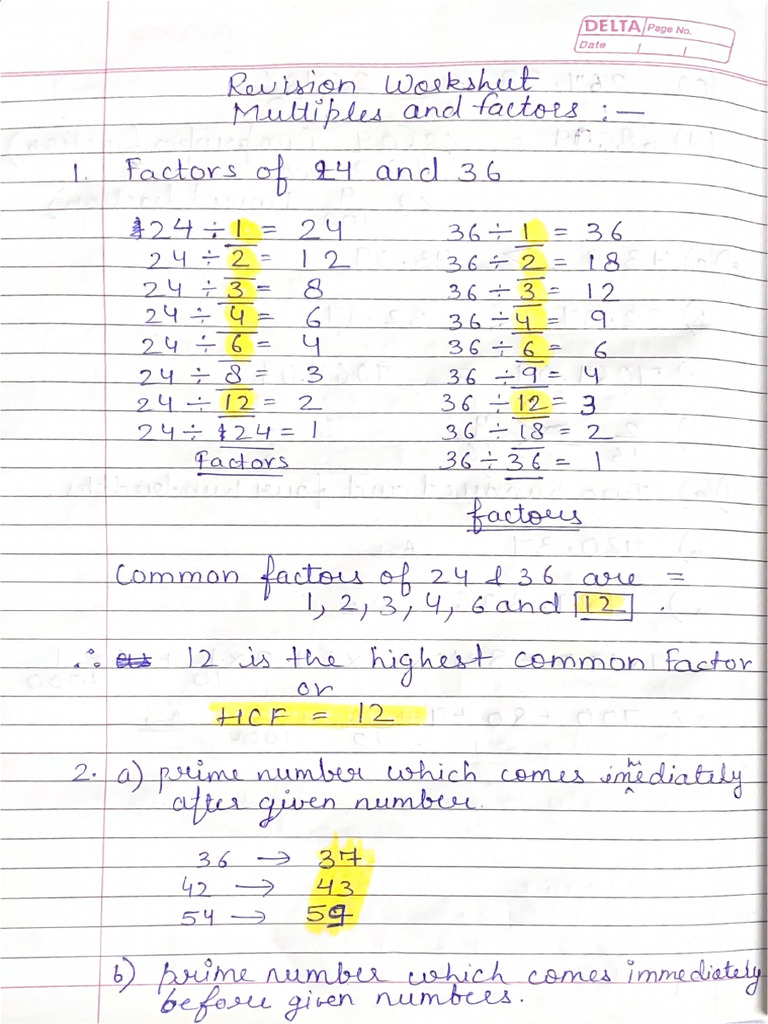 DELTA Page No.
Date
Revision Worksheet
Multiples and factors :—
1. Factors of 24 and 36
24 ÷ 1 = 24 36 ÷ 1 = 36
24 ÷ 2 = 12 36 ÷ 2 = 18
24 ÷ 3 = 8 36 ÷ 3 = 12
24 ÷ 4 = 6 36 ÷ 4 = 9
24 ÷ 6 = 4 36 ÷ 6 = 6
24 ÷ 8 = 3 36 ÷ 9 = 4
24 ÷ 12 = 2 36 ÷ 12 = 3
24 ÷ 24 = 1 36 ÷ 18 = 2
Factors 36 ÷ 36 = 1
factors
Common factors of 24 & 36 are =
1, 2, 3, 4, 6 and 12 .
∴ 12 is the highest common factor
or
HCF = 12
2. a) prime number which comes immediately
after given number.
36 → 37
42 → 43
54 → 59
b) prime number which comes immediately
before given numbers.